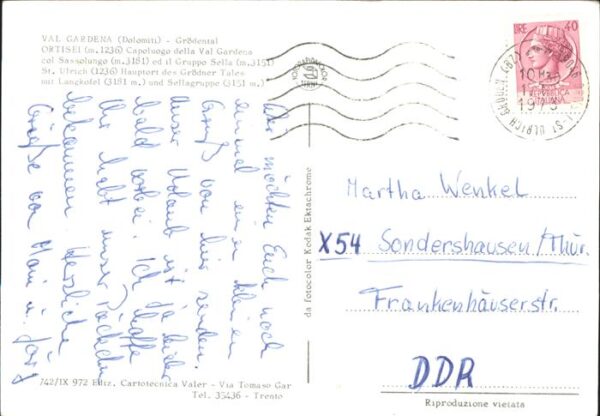 VAL GARDENA (Dolomiti) - Grödental
ORTISEI (m.1236) Capoluogo della Val Gardena
col Sassolungo (m.3181) ed il Gruppo Sella (m.3151)
St. Ulrich (1236) Hauptort des Grödner Tales
mit Langkofel (3181 m) und Sellagruppe (3151 m)
Wir möchten Euch noch
einmal einen kleinen
Gruß von hier senden.
Unser Urlaub ist ja leider
bald vorbei. Ich hoffe
Ihr habt unser Päckchen
bekommen. Herzliche
Grüße von
da fotocolor Kodak Ektachrome
LIRE 40
REPUBBLICA
ITALIANA
ST ULRICH
1973
Martha Wenkel
X54 Sondershausen/Thür.
Frankenhäuserstr.
DDR
742/IX 972 Ediz. Cartotecnica Valer - Via Tomaso Gar
Tel. 35436 - Trento
Riproduzione vietata